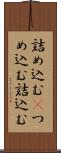 詰め込む つ
め込む詰込む